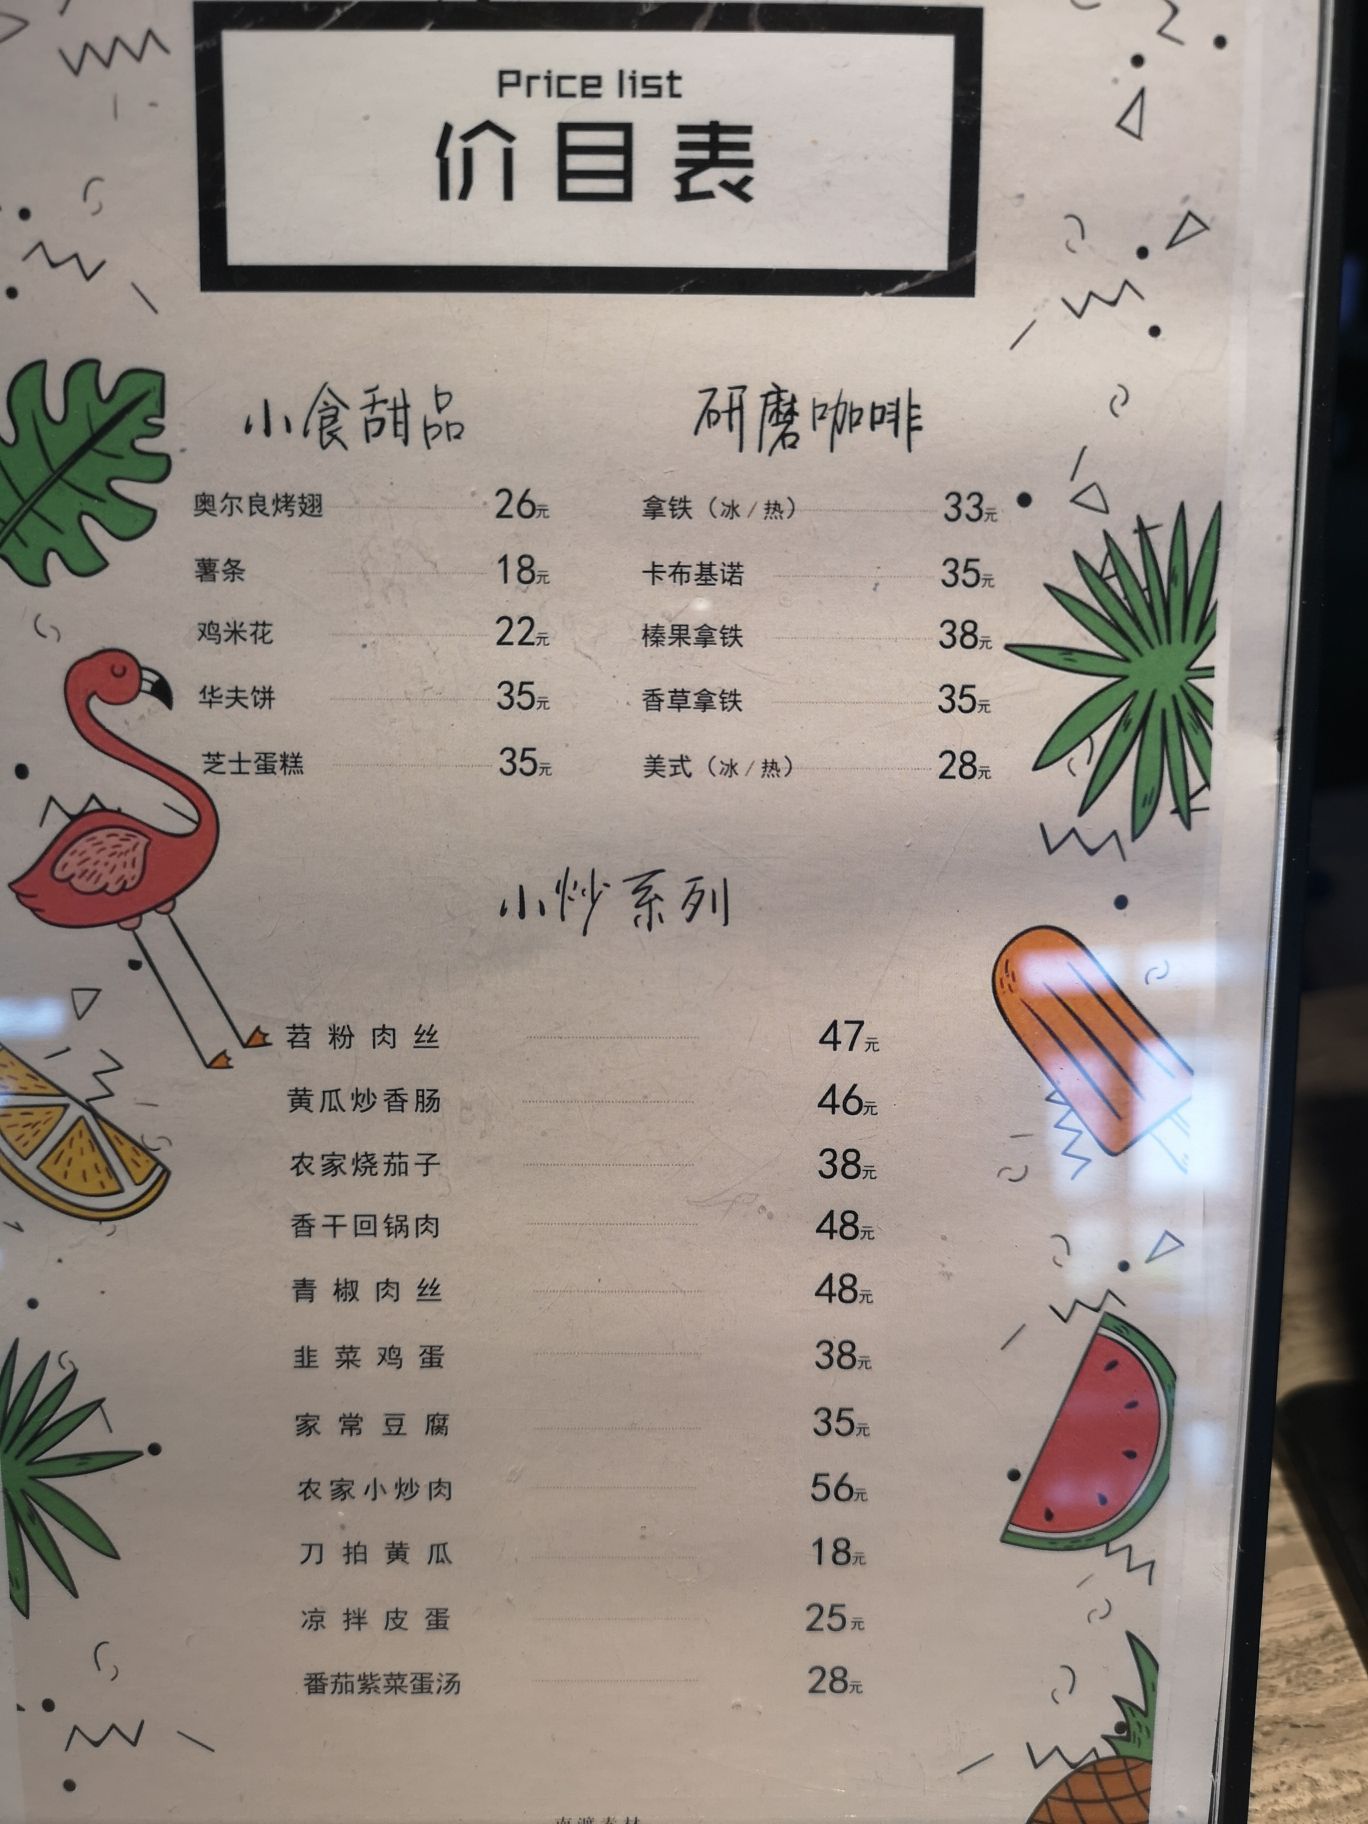 Price list
价目表
小食甜品
奥尔良烤翅 26元
薯条 18元
鸡米花 22元
华夫饼 35元
芝士蛋糕 35元
研磨咖啡
拿铁（冰/热） 33元
卡布基诺 35元
榛果拿铁 38元
香草拿铁 35元
美式（冰/热） 28元
小炒系列
苕粉肉丝 47元
黄瓜炒香肠 46元
农家烧茄子 38元
香干回锅肉 48元
青椒肉丝 48元
韭菜鸡蛋 38元
家常豆腐 35元
农家小炒肉 56元
刀拍黄瓜 18元
凉拌皮蛋 25元
番茄紫菜蛋汤 28元